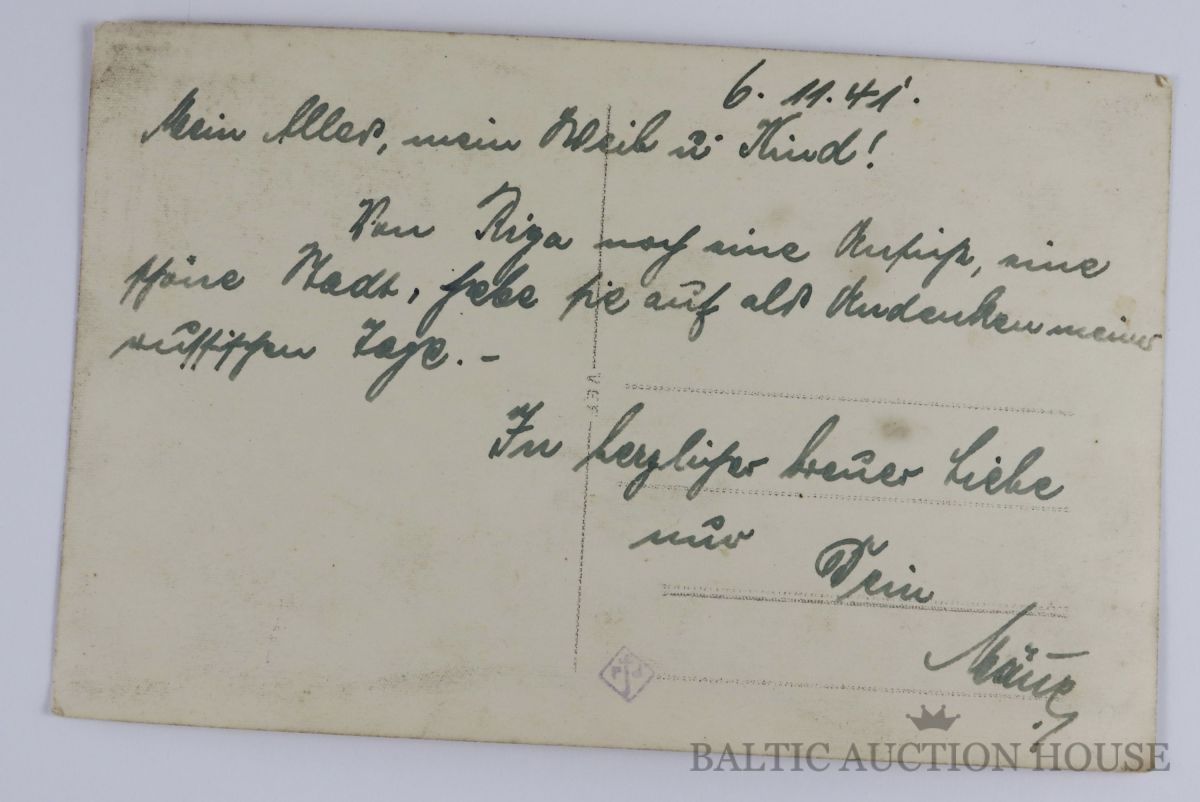 6. 11. 41.
Mein Alles, mein Weib u. Kind!
Von Riga noch eine Ansicht, eine
schöne Stadt, hebe sie auf als Andenken meiner
russischen Tage. –
In herzlicher treuer Liebe
nur Dein
BALTIC AUCTION HOUSE